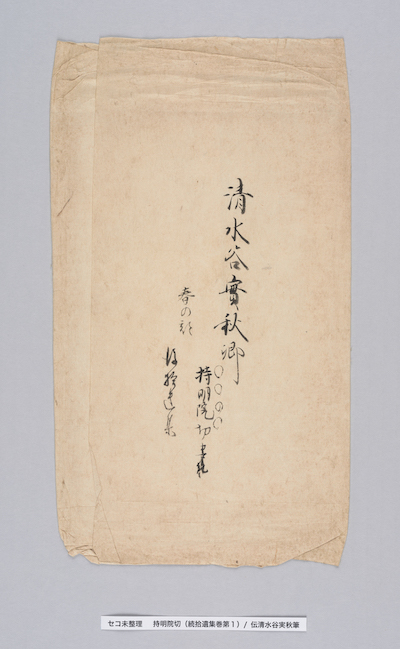 清水谷實秋卿
○○○○
持明院切
春の歌
後拾遺集
セコ未整理　持明院切（続拾遺集巻第１）/ 伝清水谷実秋筆